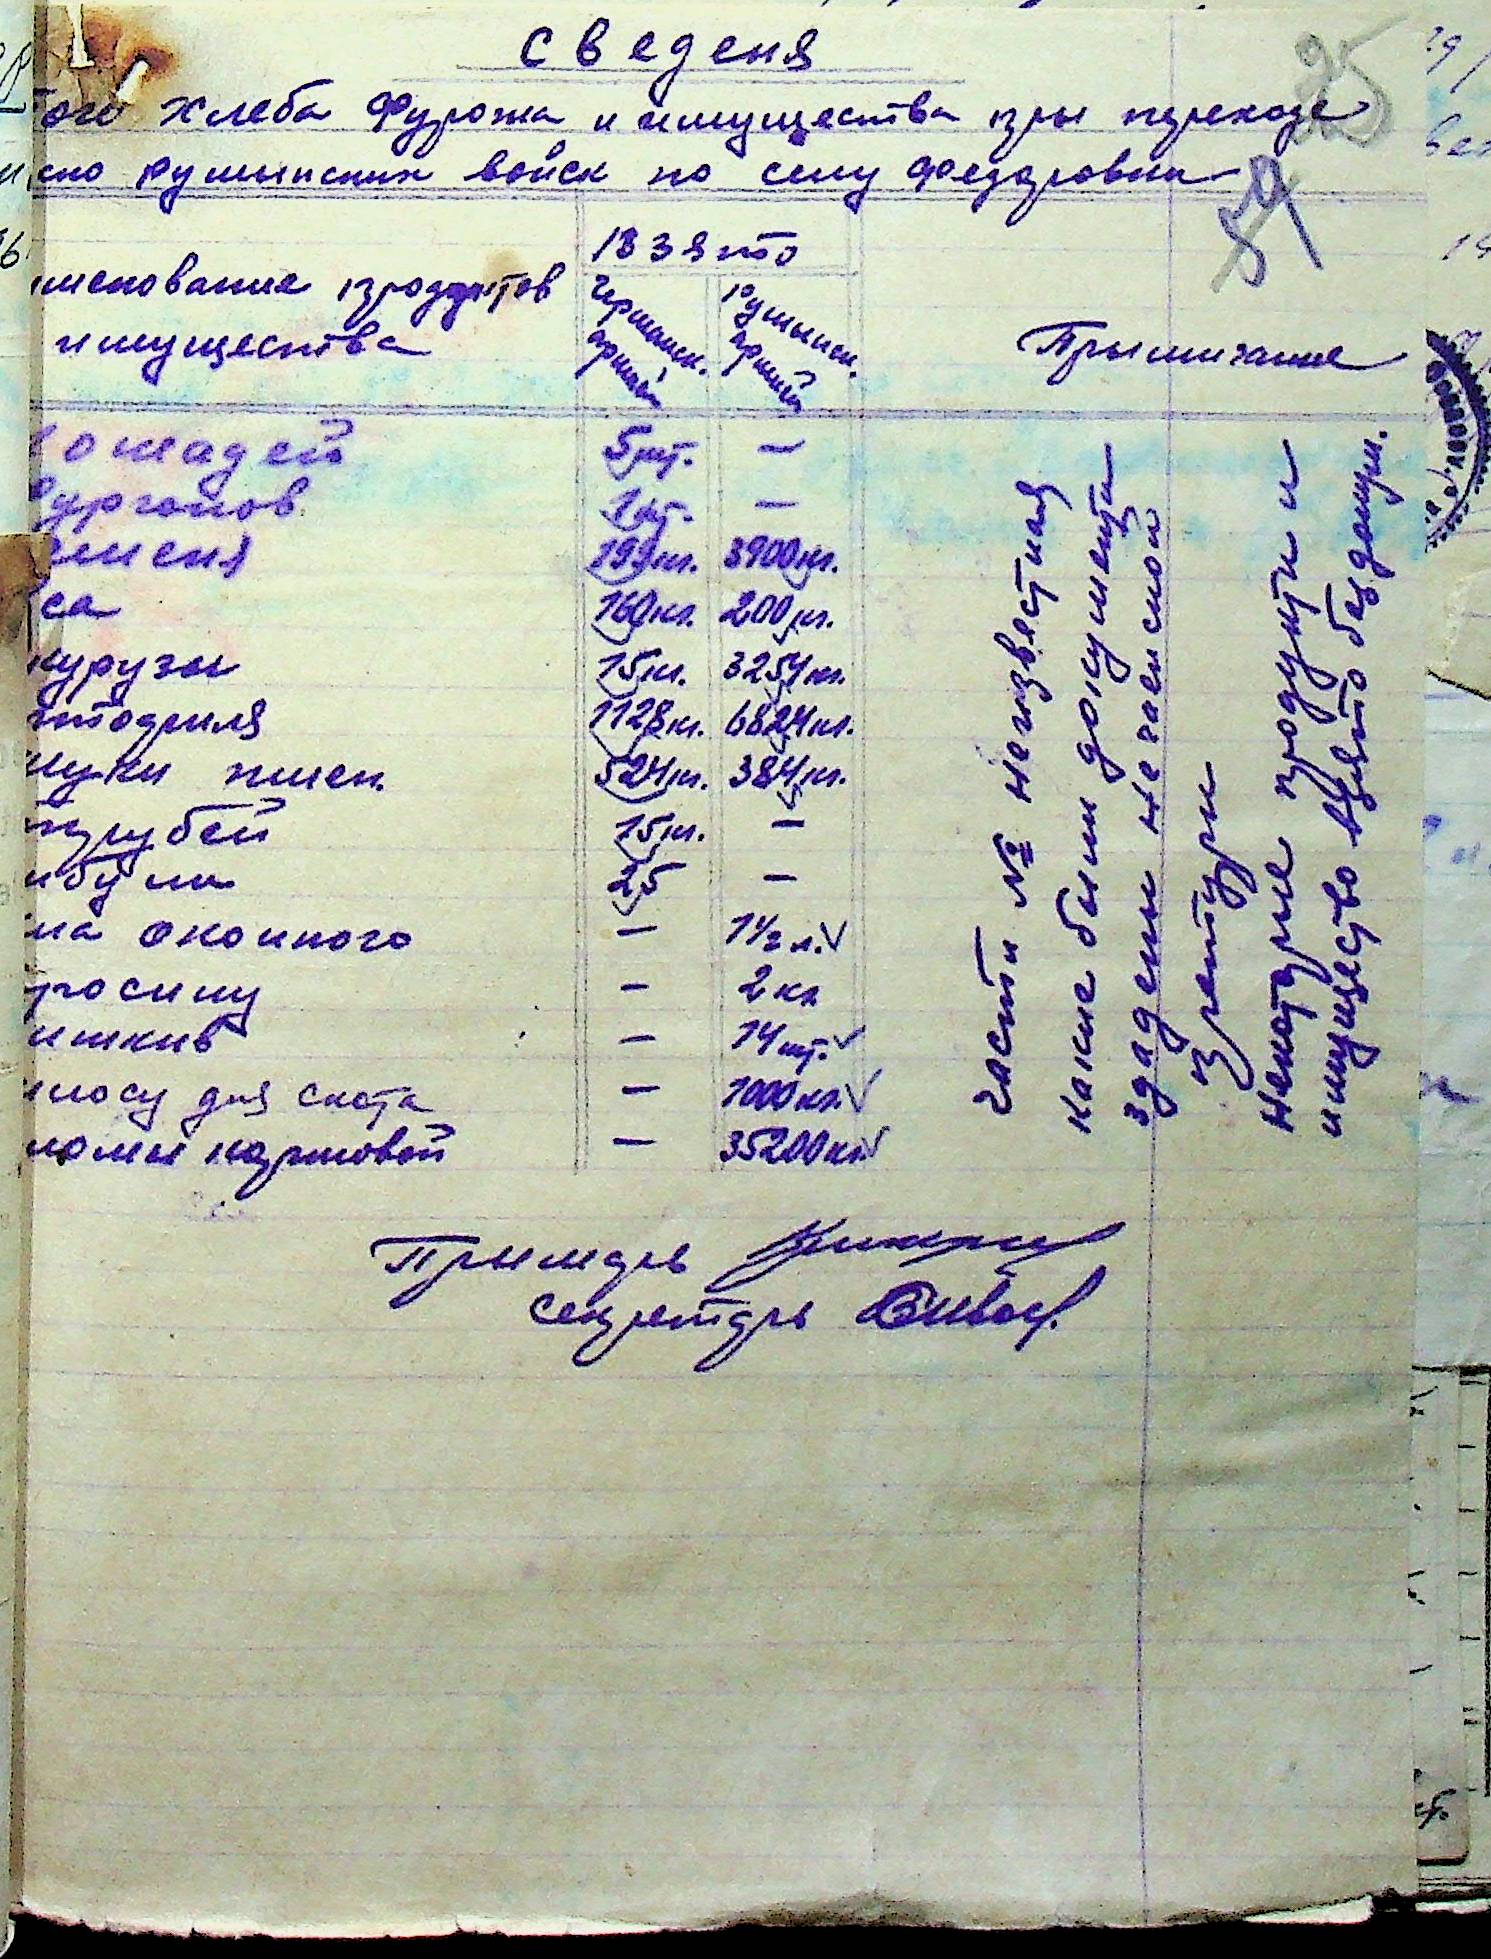 Сведеня
25
того хлеба фуража и имущества при переходе
ско румынских войск по селу Федоровки
59
именование продуктов
и имущества
Взято
Германск. армией
Румынск. армией
Примичание
лошадей 5 шт. —
фургонов 1 шт. —
чменя 199 кг. 3900 кг.
са 160 кг. 200 кг.
курузы 15 кг. 3254 кг.
ртофиля 1128 кг. 6824 кг.
муки пшен. 524 кг. 384 кг.
отрубей 15 кг. —
ибули 25 —
ла оконного — 1 1/2 л.
росину — 2 кг
ишкив — 14 шт.
илосу для скота — 1000 кг.
ломы кормовой — 35200 кг.
Части № неизвестная
какие были документи
здадени нечаеиской
претури
Некаторие продукти и
имущество взято без докум.
Примарь
Секретарь